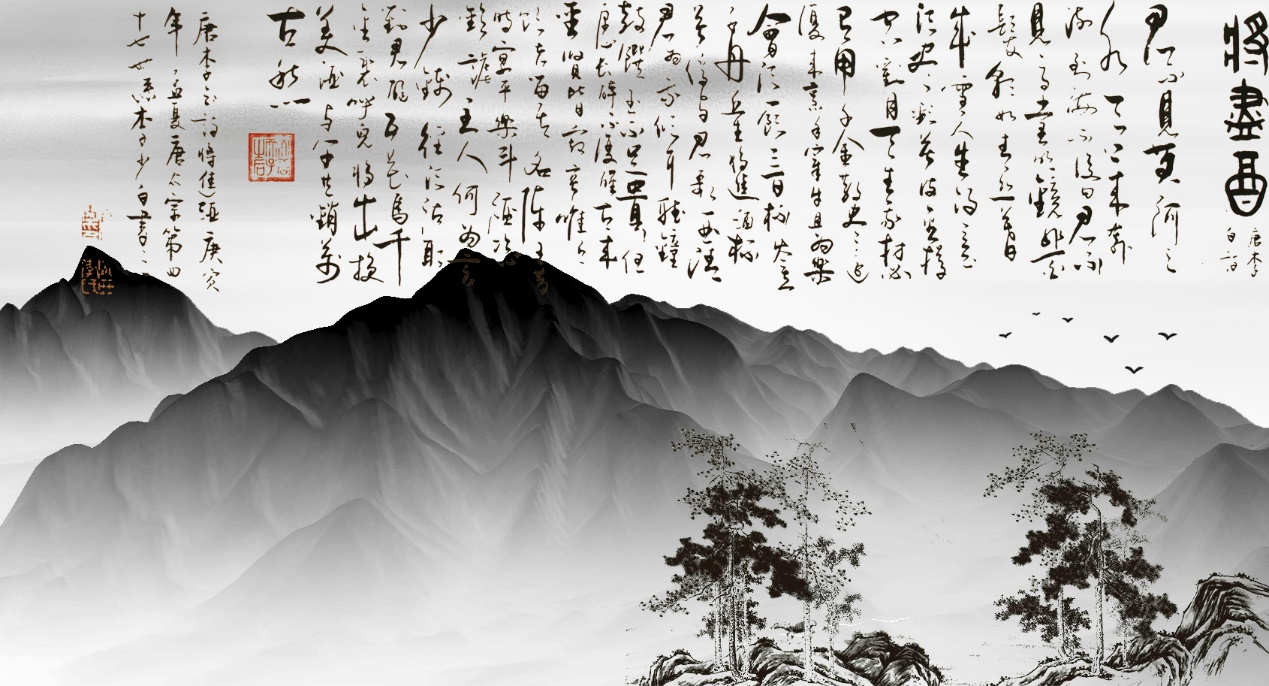 將盡酉
唐李
白詩
君不見黃河之
水天上來奔
流到海不復回君不
見高堂明鏡悲白
髮朝如青絲暮
成雪人生得意
須盡歡莫使金樽
空對月天生我材必
有用千金散盡還
復來烹羊宰牛且為樂
會須一飲三百杯岑夫
子丹丘生將進酒杯
莫停與君歌一曲請
君為我側耳聽鐘
鼓饌玉不足貴但
願長醉不復醒古來
聖賢皆寂寞惟有
飲者留其名陳王昔
時宴平樂斗酒十千恣
歡謔主人何為言
少錢徑須沽取
對君酌五花馬千
金裘呼兒將出換
美酒與爾同銷萬
古愁
唐李白詩將進酒庚寅
年孟夏唐太宗第四
十七世